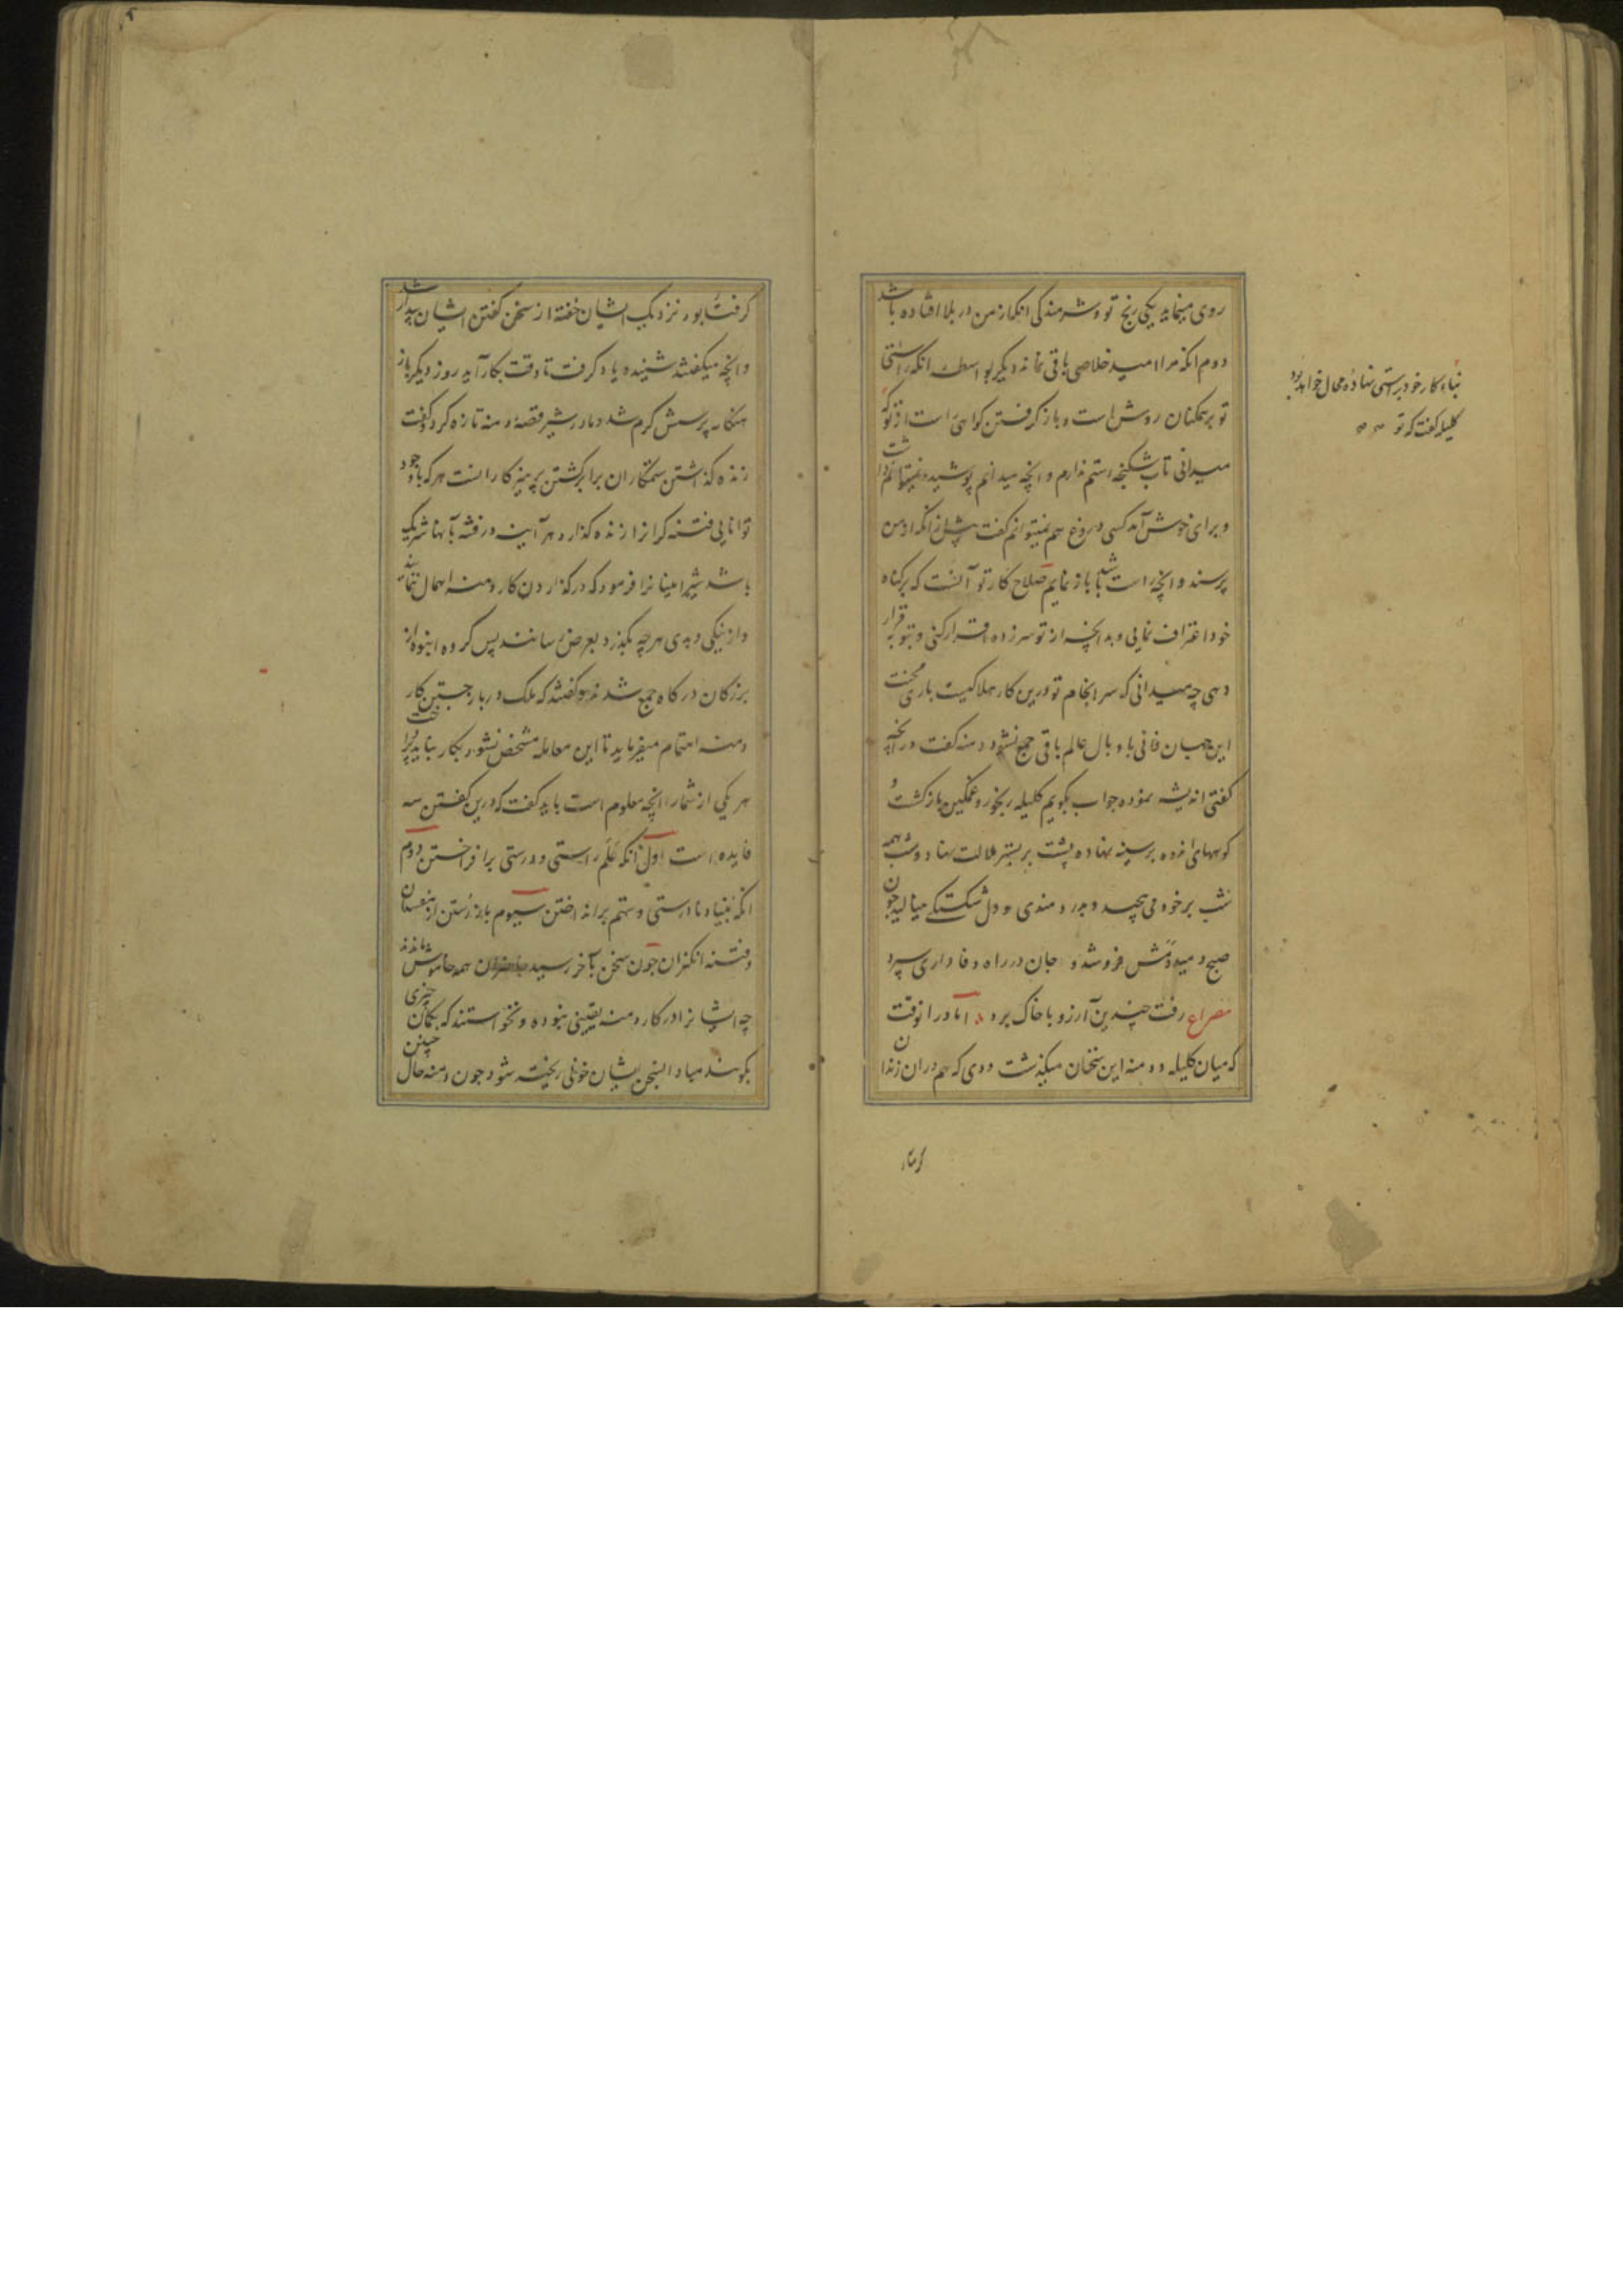 روی مینماید یکی رنج تو و شرمندگی انکه از من در بلا افتاده باشد
دوم انکه مرا امید خلاصی باقی نماند دیگر بواسطه انکه راستی
تو بر همکنان روشن است و باز کرفتن کواهی راست از تو
میدانی تاب شکنجه و ستم ندارم و انچه میدانم پوشیده نمیتوانم داشت
و برای خوش آمد کسی دروغ هم نمیتوانم کفت پیش از انکه از من
پرسند و انچه راست باشد باز نمایم صلاح کار تو آنست که بر کناه
خود اعتراف نمایی و بدانچه از تو سر زده اقرار کنی و بتوبه قرار
دهی چه میدانی که سرانجام تو درین کار هلاکیست باری محنت
این جهان فانی با وبال عالم باقی جمع نشود دمنه کفت در انچه
کفتی اندیشه نموده جواب بکویم کلیله رنجور و غمکین بازکشت و
کوههای انده بر سینه نهاده پشت بر بستر ملالت نهاد و شب همه
شب بر خود می پیچید و بدردمندی و دل شکستکی مینالید چون
صبح دمید دمش فرو شد و جان در راه وفاداری سپرد
مصراع رفت چندین آرزو با خاک برد اما در انوقت
که میان کلیله و دمنه این سخنان میکذشت ددی که هم دران زندان
بناء کار خود بر راستی نهاده محال خواهد بود
کلیله کفت که تو
کرفتار بود نزدیک ایشان خفته از سخن کفتن ایشان بیدار شد
و انچه میکفتند شنیده یاد کرفت تا وقت بکار آید روز دیکر باز
هنکامه پرسش کرم شد و مادر شیر قصه دمنه تازه کرد و کفت
زنده کذاشتن ستمکاران برابر کشتن پرهیزکارانست هر که با وجود
توانایی فتنه کرانرا زنده کذارد هر آینه در فتنه با آنها شریک
باشد شیر امینانرا فرمود که در کذاردن کار دمنه اهمال ننمایند
و از نیکی و بدی هر چه بکذرد بعرض رسانند پس کروه انبوه از
بزرکان درکاه جمع شدند و کفتند که ملک در باز جستن کار
دمنه اهتمام میفرماید تا این معامله مشخص نشود بکار نباید پرداخت
هر یکی از شمارا انچه معلوم است باید کفت که درین کفتن سه
فایده است اول آنکه علم راستی و درستی برافراختن دوم
انکه بنیاد نادرستی و ستم برانداختن سیوم باز رستن از مفسدان
و فتنه انکیزان چون سخن بآخر رسید حاضران همه خاموش ماندند
چه ایشانرا در کار دمنه یقینی نبوده و نخواستند که بکمان چیزی
بکویند مبادا بسخن ایشان خونی ریخته شود چون دمنه حال چنین